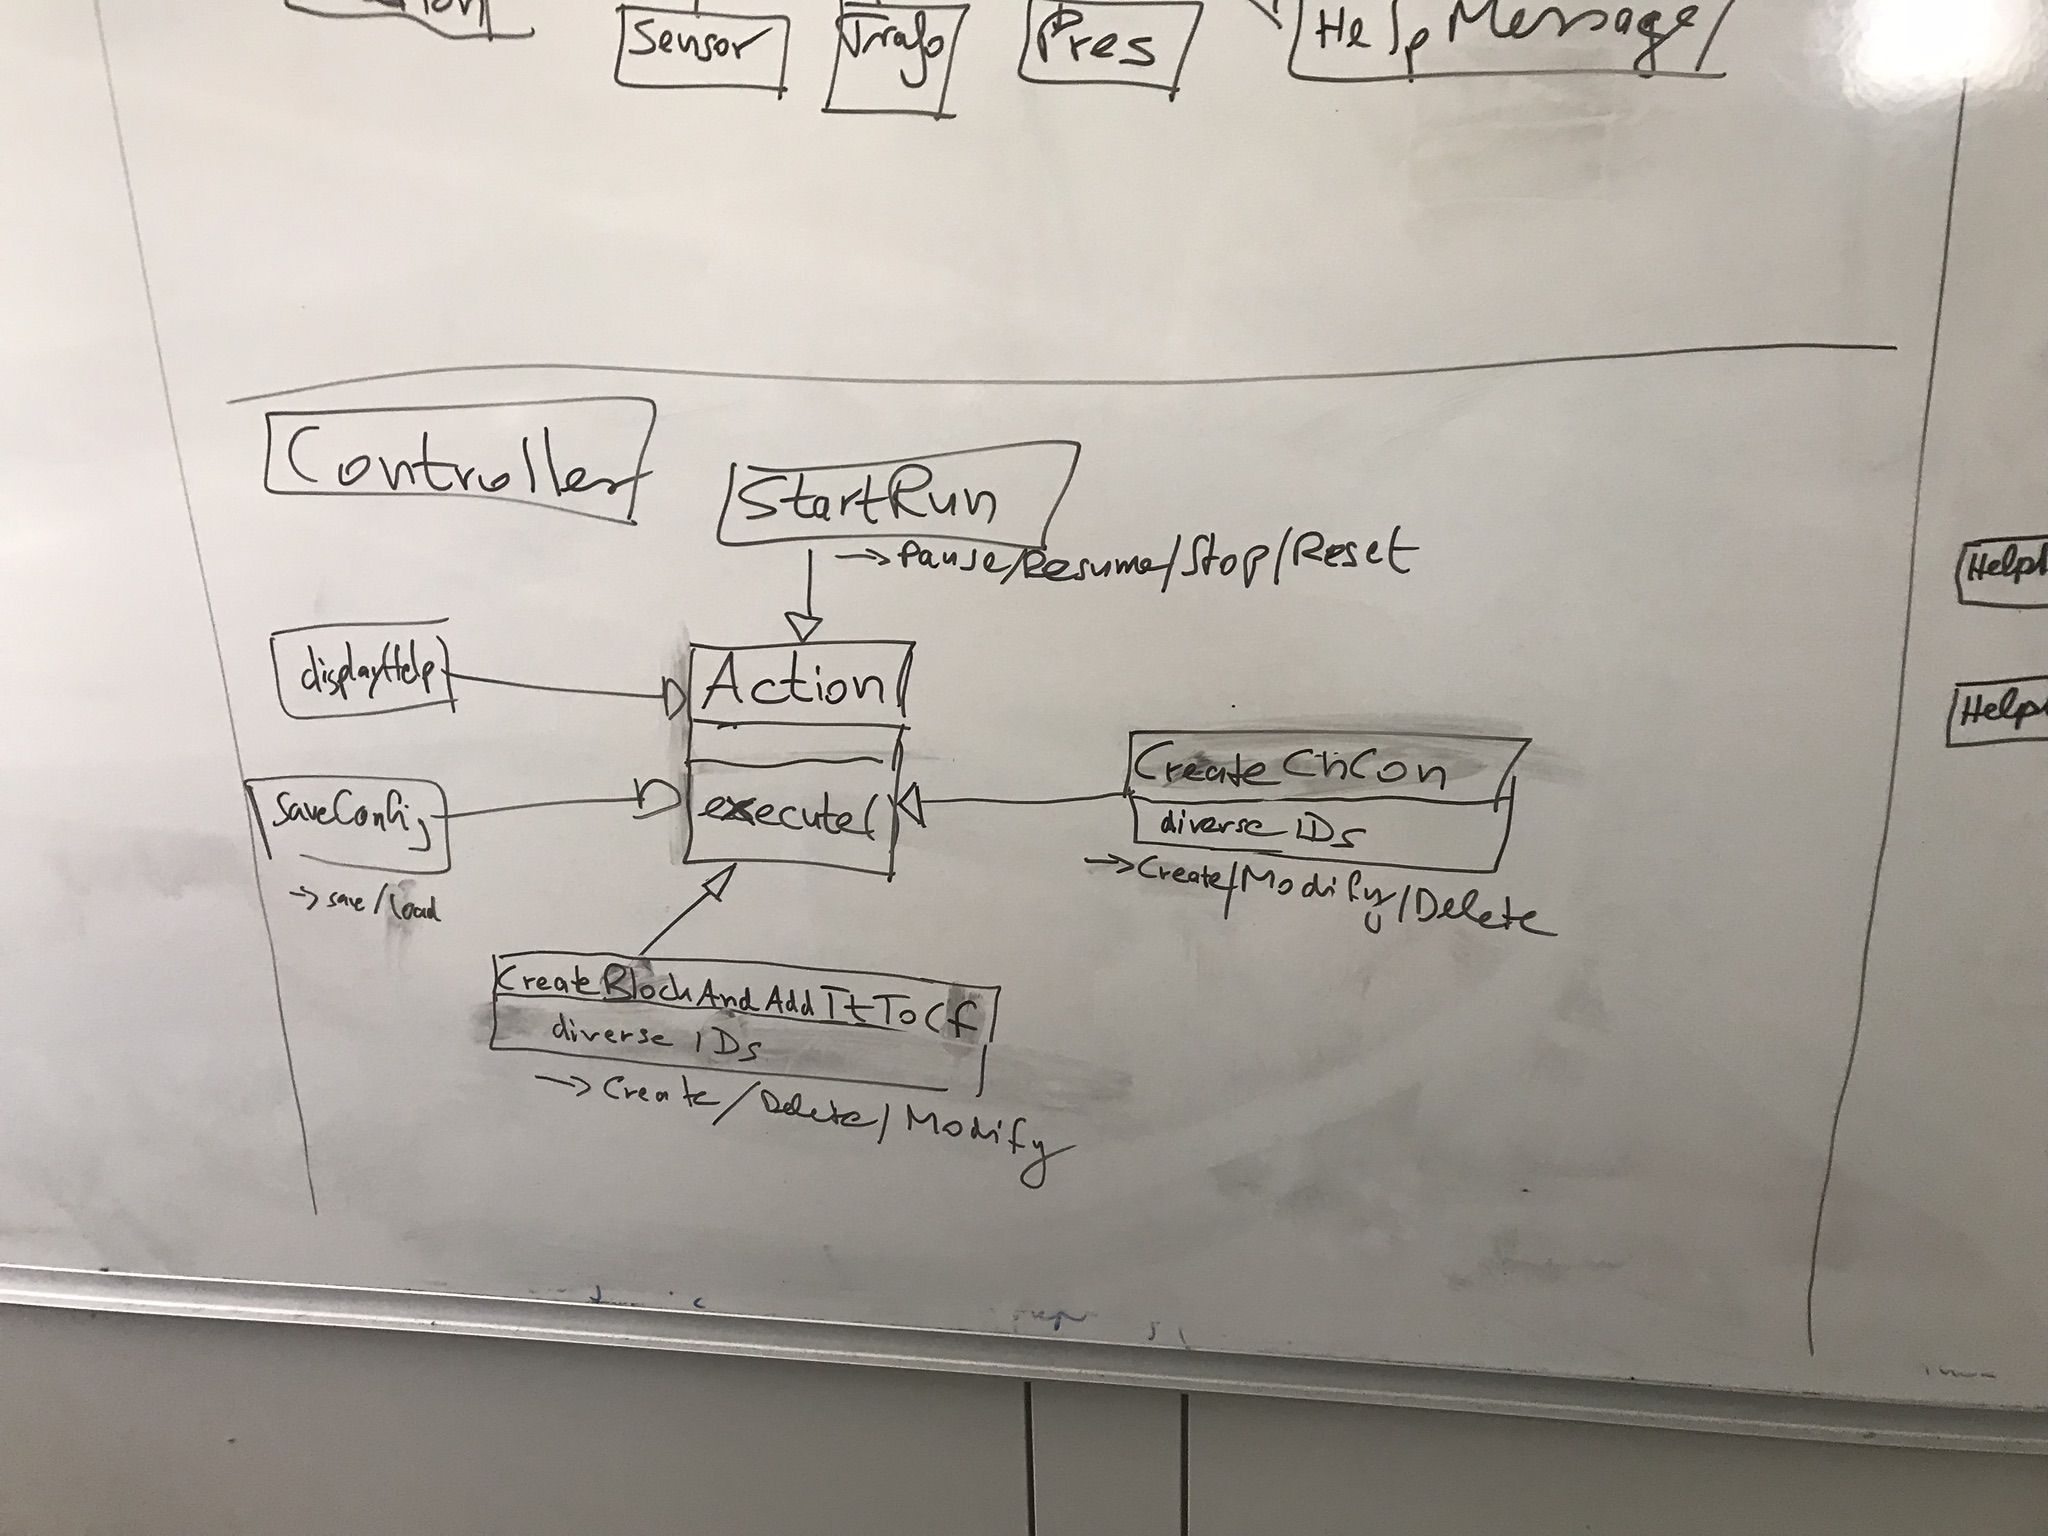 Sensor
Trafo
Pres
HelpMessage
Controller
StartRun
→ Pause/Resume/Stop/Reset
displayHelp
Action
saveConfig
execute(
→ save/load
Create ChCon
diverse IDs
→ Create/Modify/Delete
CreateBlockAndAddItToCf
diverse IDs
→ Create/Delete/Modify
Help
Help